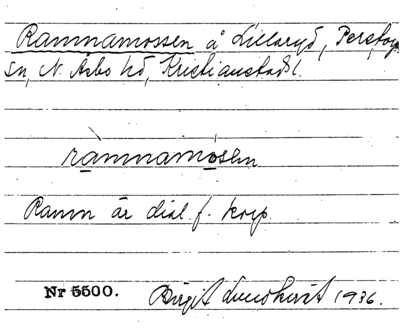 Ramnamossen å Lillaryd, Perstorps
sn, N. Åsbo hd, Kristianstads l.
ràmnamósen
Ramn är dial. f. korp.
Nr 5500. Birgit Lundkvist 1936.